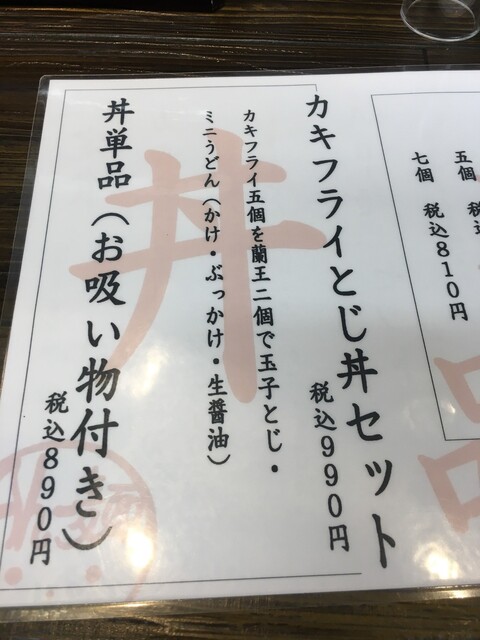 五個 税込
七個 税込810円
カキフライとじ丼セット
税込990円
カキフライ五個を蘭王二個で玉子とじ・
ミニうどん（かけ・ぶっかけ・生醤油）
丼単品（お吸い物付き）
税込890円
丼
品